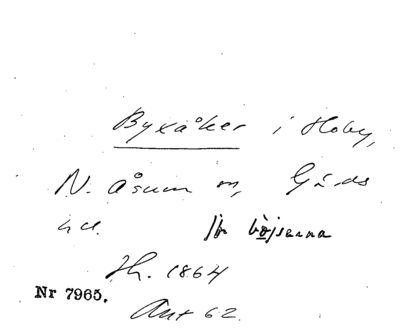 Byxåker i Hoby,
N. Åsum sn, Gärds
hd. jfr böjsarna
Jh. 1864
Nr 7965.
Ant 62